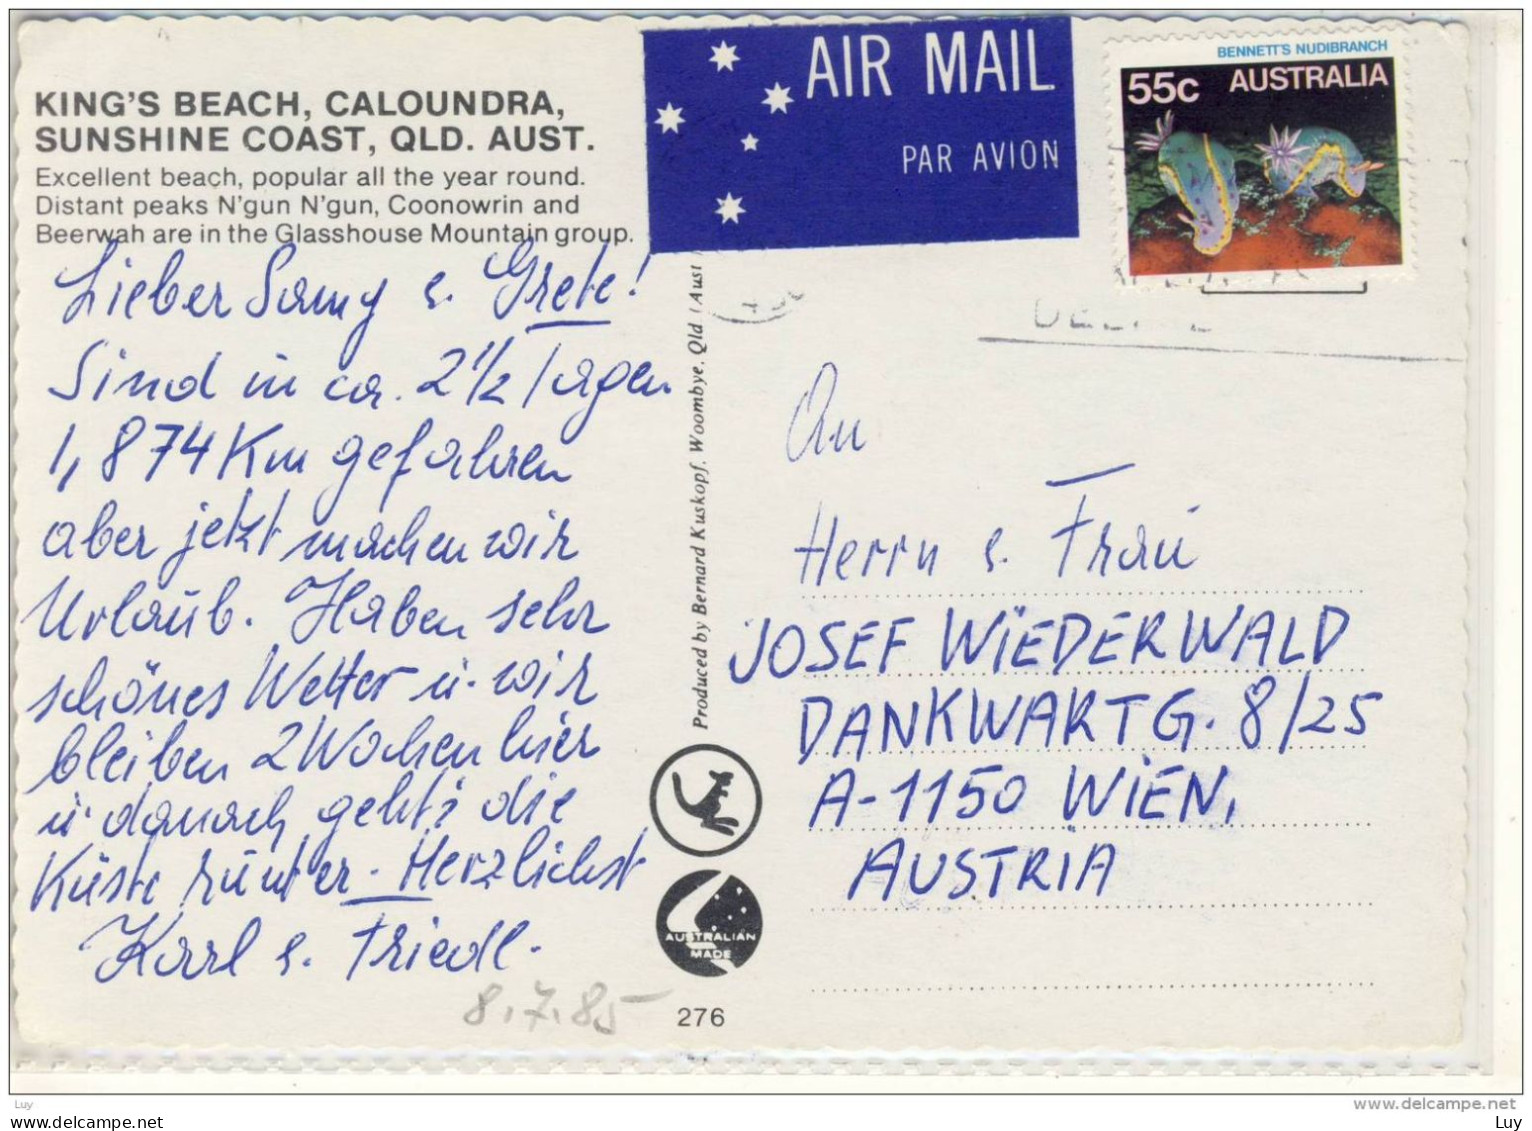 KING'S BEACH, CALOUNDRA,
SUNSHINE COAST, QLD. AUST.
Excellent beach, popular all the year round.
Distant peaks N'gun N'gun, Coonowrin and
Beerwah are in the Glasshouse Mountain group.
Lieber Samy u. Grete!
Sind in ca. 2½ Tagen
1,874 Km gefahren
aber jetzt machen wir
Urlaub. Haben sehr
schönes Wetter u. wir
bleiben 2 Wochen hier
u. danach geht's die
Küste runter. Herzlichst
Karl u. Friedl.
8.7.85
AIR MAIL
PAR AVION
BENNETT'S NUDIBRANCH
55c AUSTRALIA
Produced by Bernard Kuskopf, Woombye, Qld Aust
AUSTRALIAN
MADE
276
An
Herrn u. Frau
JOSEF WIEDERWALD
DANKWARTG. 8/25
A-1150 WIEN,
AUSTRIA
Luy
www.delcampe.net
Luy
www.delcampe.net
Luy